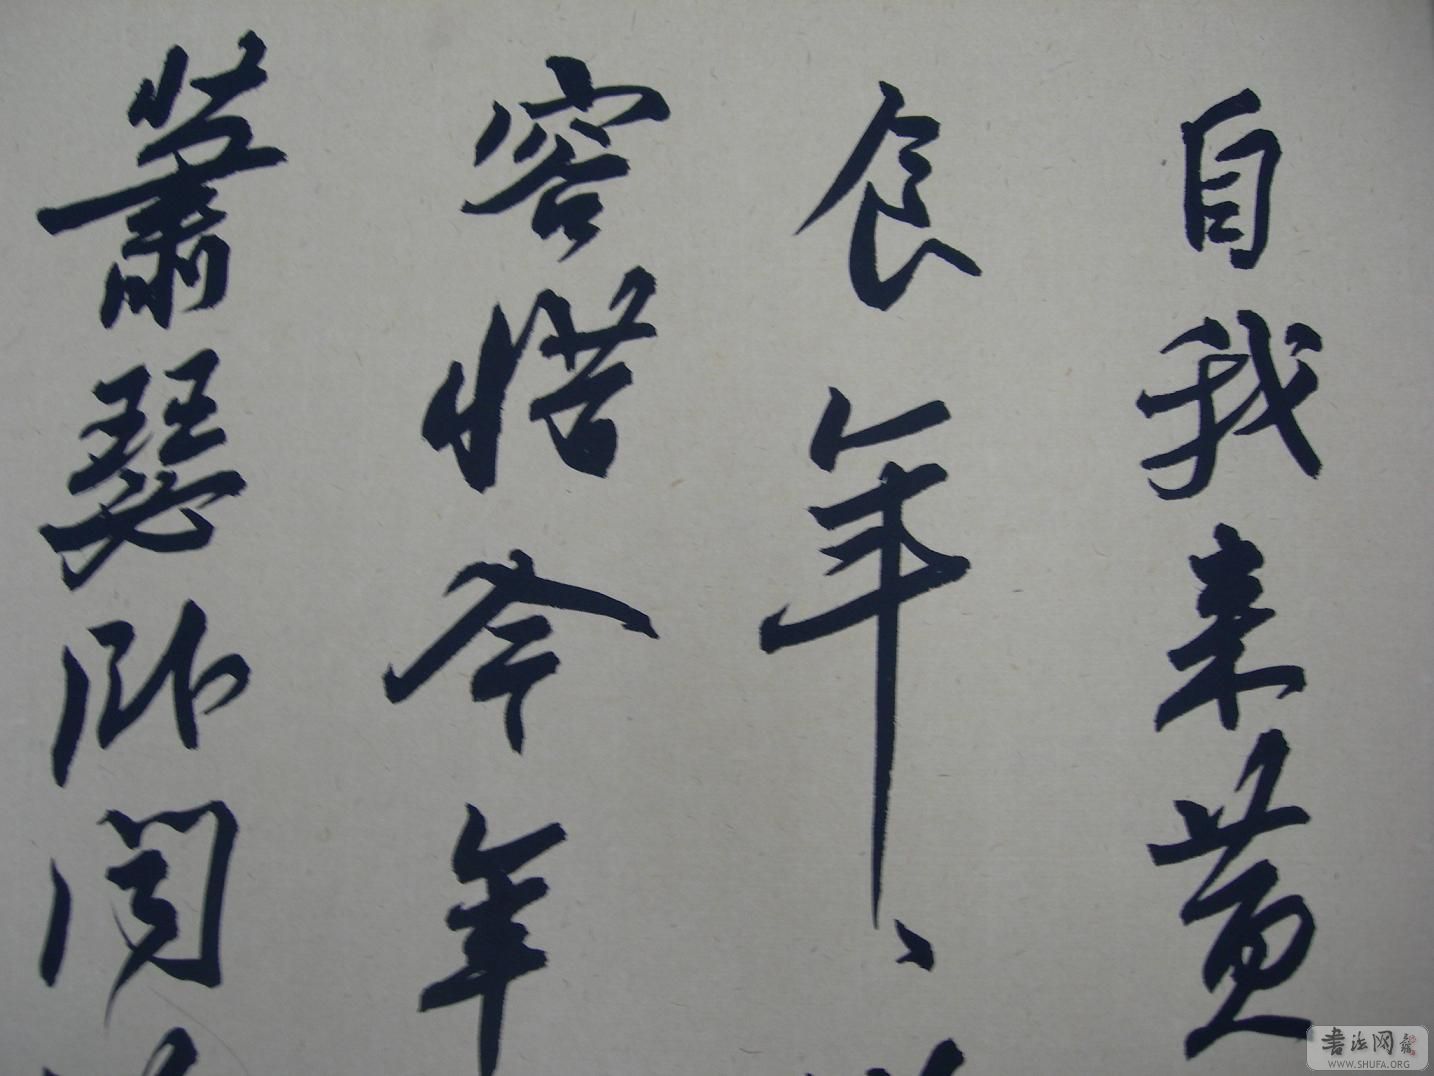 自我来黄
食年〻
容惜今年
萧瑟卧闻
書法网
WWW.SHUFA.ORG